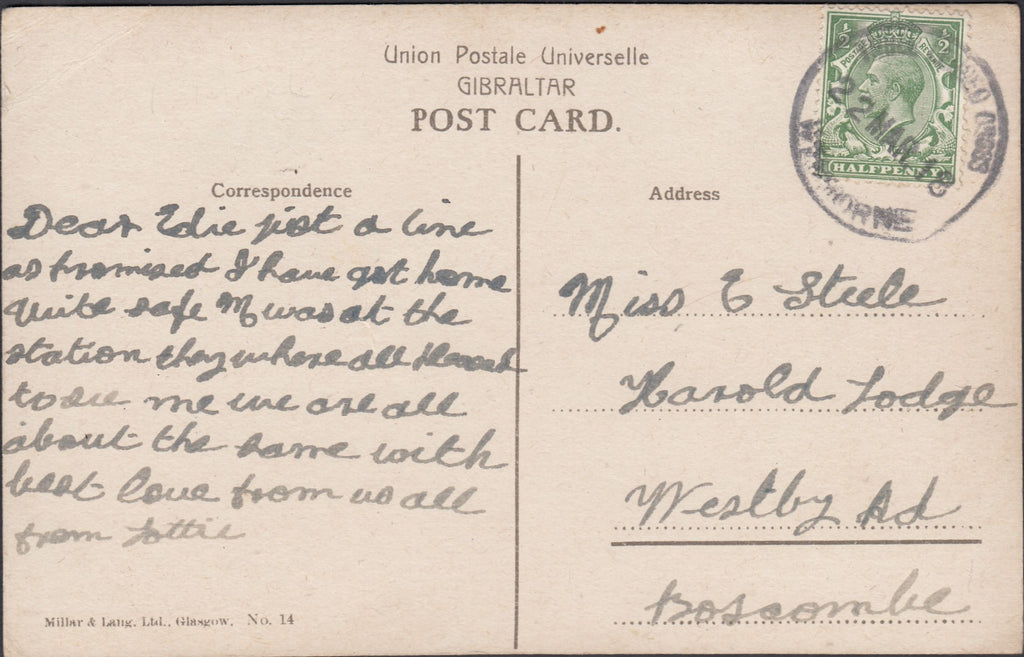 Union Postale Universelle
GIBRALTAR
POST CARD.
½ ½
POSTAGE REVENUE
HALFPENNY
22 MAR 18
CROSS
Correspondence
Dear Edie just a line
as promised I have got home
quite safe M was at the
station they where all
to see me we are all
about the same with
best love from us all
from Lottie
Address
Miss E Steele
Harold Lodge
Westby Rd
Boscombe
Millar & Lang. Ltd., Glasgow. No. 14